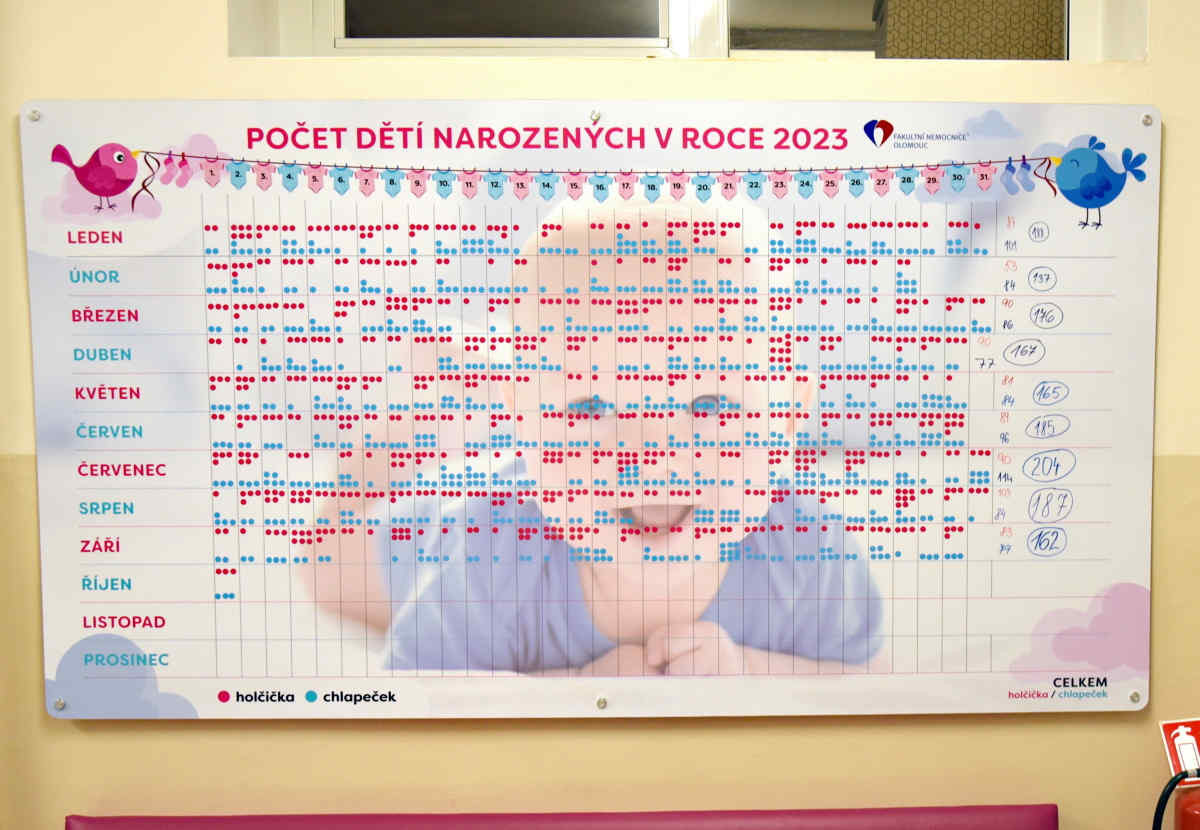 POČET DĚTÍ NAROZENÝCH V ROCE 2023
FAKULTNÍ NEMOCNICE
OLOMOUC
1. 2. 3. 4. 5. 6. 7. 8. 9. 10. 11. 12. 13. 14. 15. 16. 17. 18. 19. 20. 21. 22. 23. 24. 25. 26. 27. 28. 29. 30. 31.
LEDEN 101
ÚNOR 53 84 137
BŘEZEN 90 86 176
DUBEN 90 77 167
KVĚTEN 81 84 165
ČERVEN 89 96 185
ČERVENEC 90 114 204
SRPEN 103 84 187
ZÁŘÍ 83 79 162
ŘÍJEN
LISTOPAD
PROSINEC
holčička chlapeček
CELKEM
holčička / chlapeček